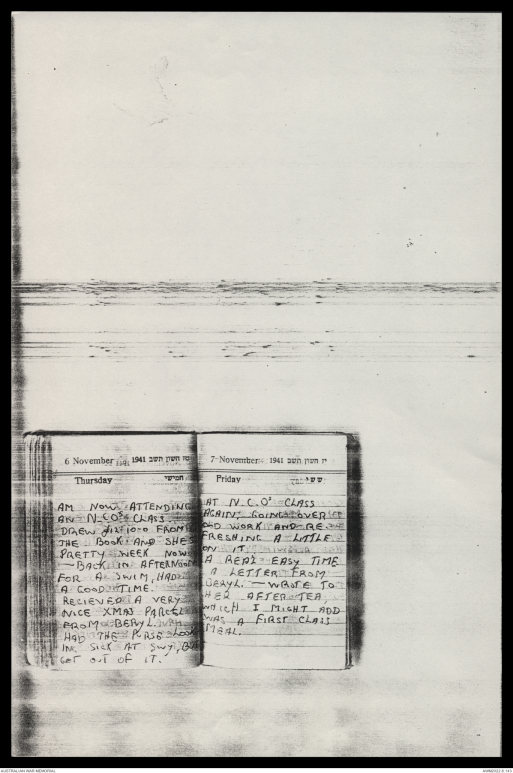 6 November 1941 טז חשון תשב
Thursday חמישי
AM NOW ATTENDING
AN N.C.O'S CLASS
DREW £12-10-0 FROM
THE BOOK AND SHE'S
PRETTY WEEK NOW
— BACK IN AFTERNOON
FOR A SWIM, HAD
A GOOD TIME.
RECIEVED A VERY
NICE XMAS PARCEL
FROM BERYL.
HAD THE PURSE LOOK
ING SICK AT SWY, BUT
GET OUT OF IT.
7 November 1941 יז חשון תשב
Friday ששי
AT N.C.O'S CLASS
AGAIN, GOING OVER
OLD WORK AND RE-
FRESHING A LITTLE
ON IT
A REAL EASY TIME
A LETTER FROM
BERYL. — WROTE TO
HER AFTER TEA,
WHICH I MIGHT ADD
WAS A FIRST CLASS
MEAL.
AUSTRALIAN WAR MEMORIAL